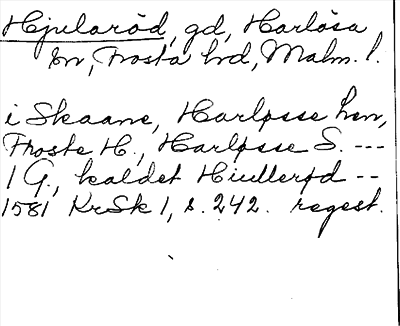 Hjularöd, gd, Harlösa
sn, Frosta hd, Malm. l.
i Skaane, Harløsse hrn,
Froste H., Harløsse S. ---
1 G., kaldet Hiullerød --
1581 KrSk 1, s. 242. regest.